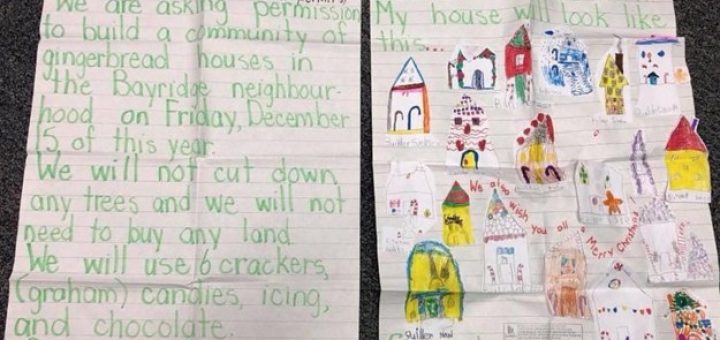 We are asking permission
to build a community of
gingerbread houses in
the Bayridge neighbour-
hood on Friday, December
15 of this year.
We will not cut down
any trees and we will not
need to buy any land.
We will use 6 crackers,
(graham) candies, icing,
and chocolate.
My house will look like
this...
We also wish you all a Merry Christmas!